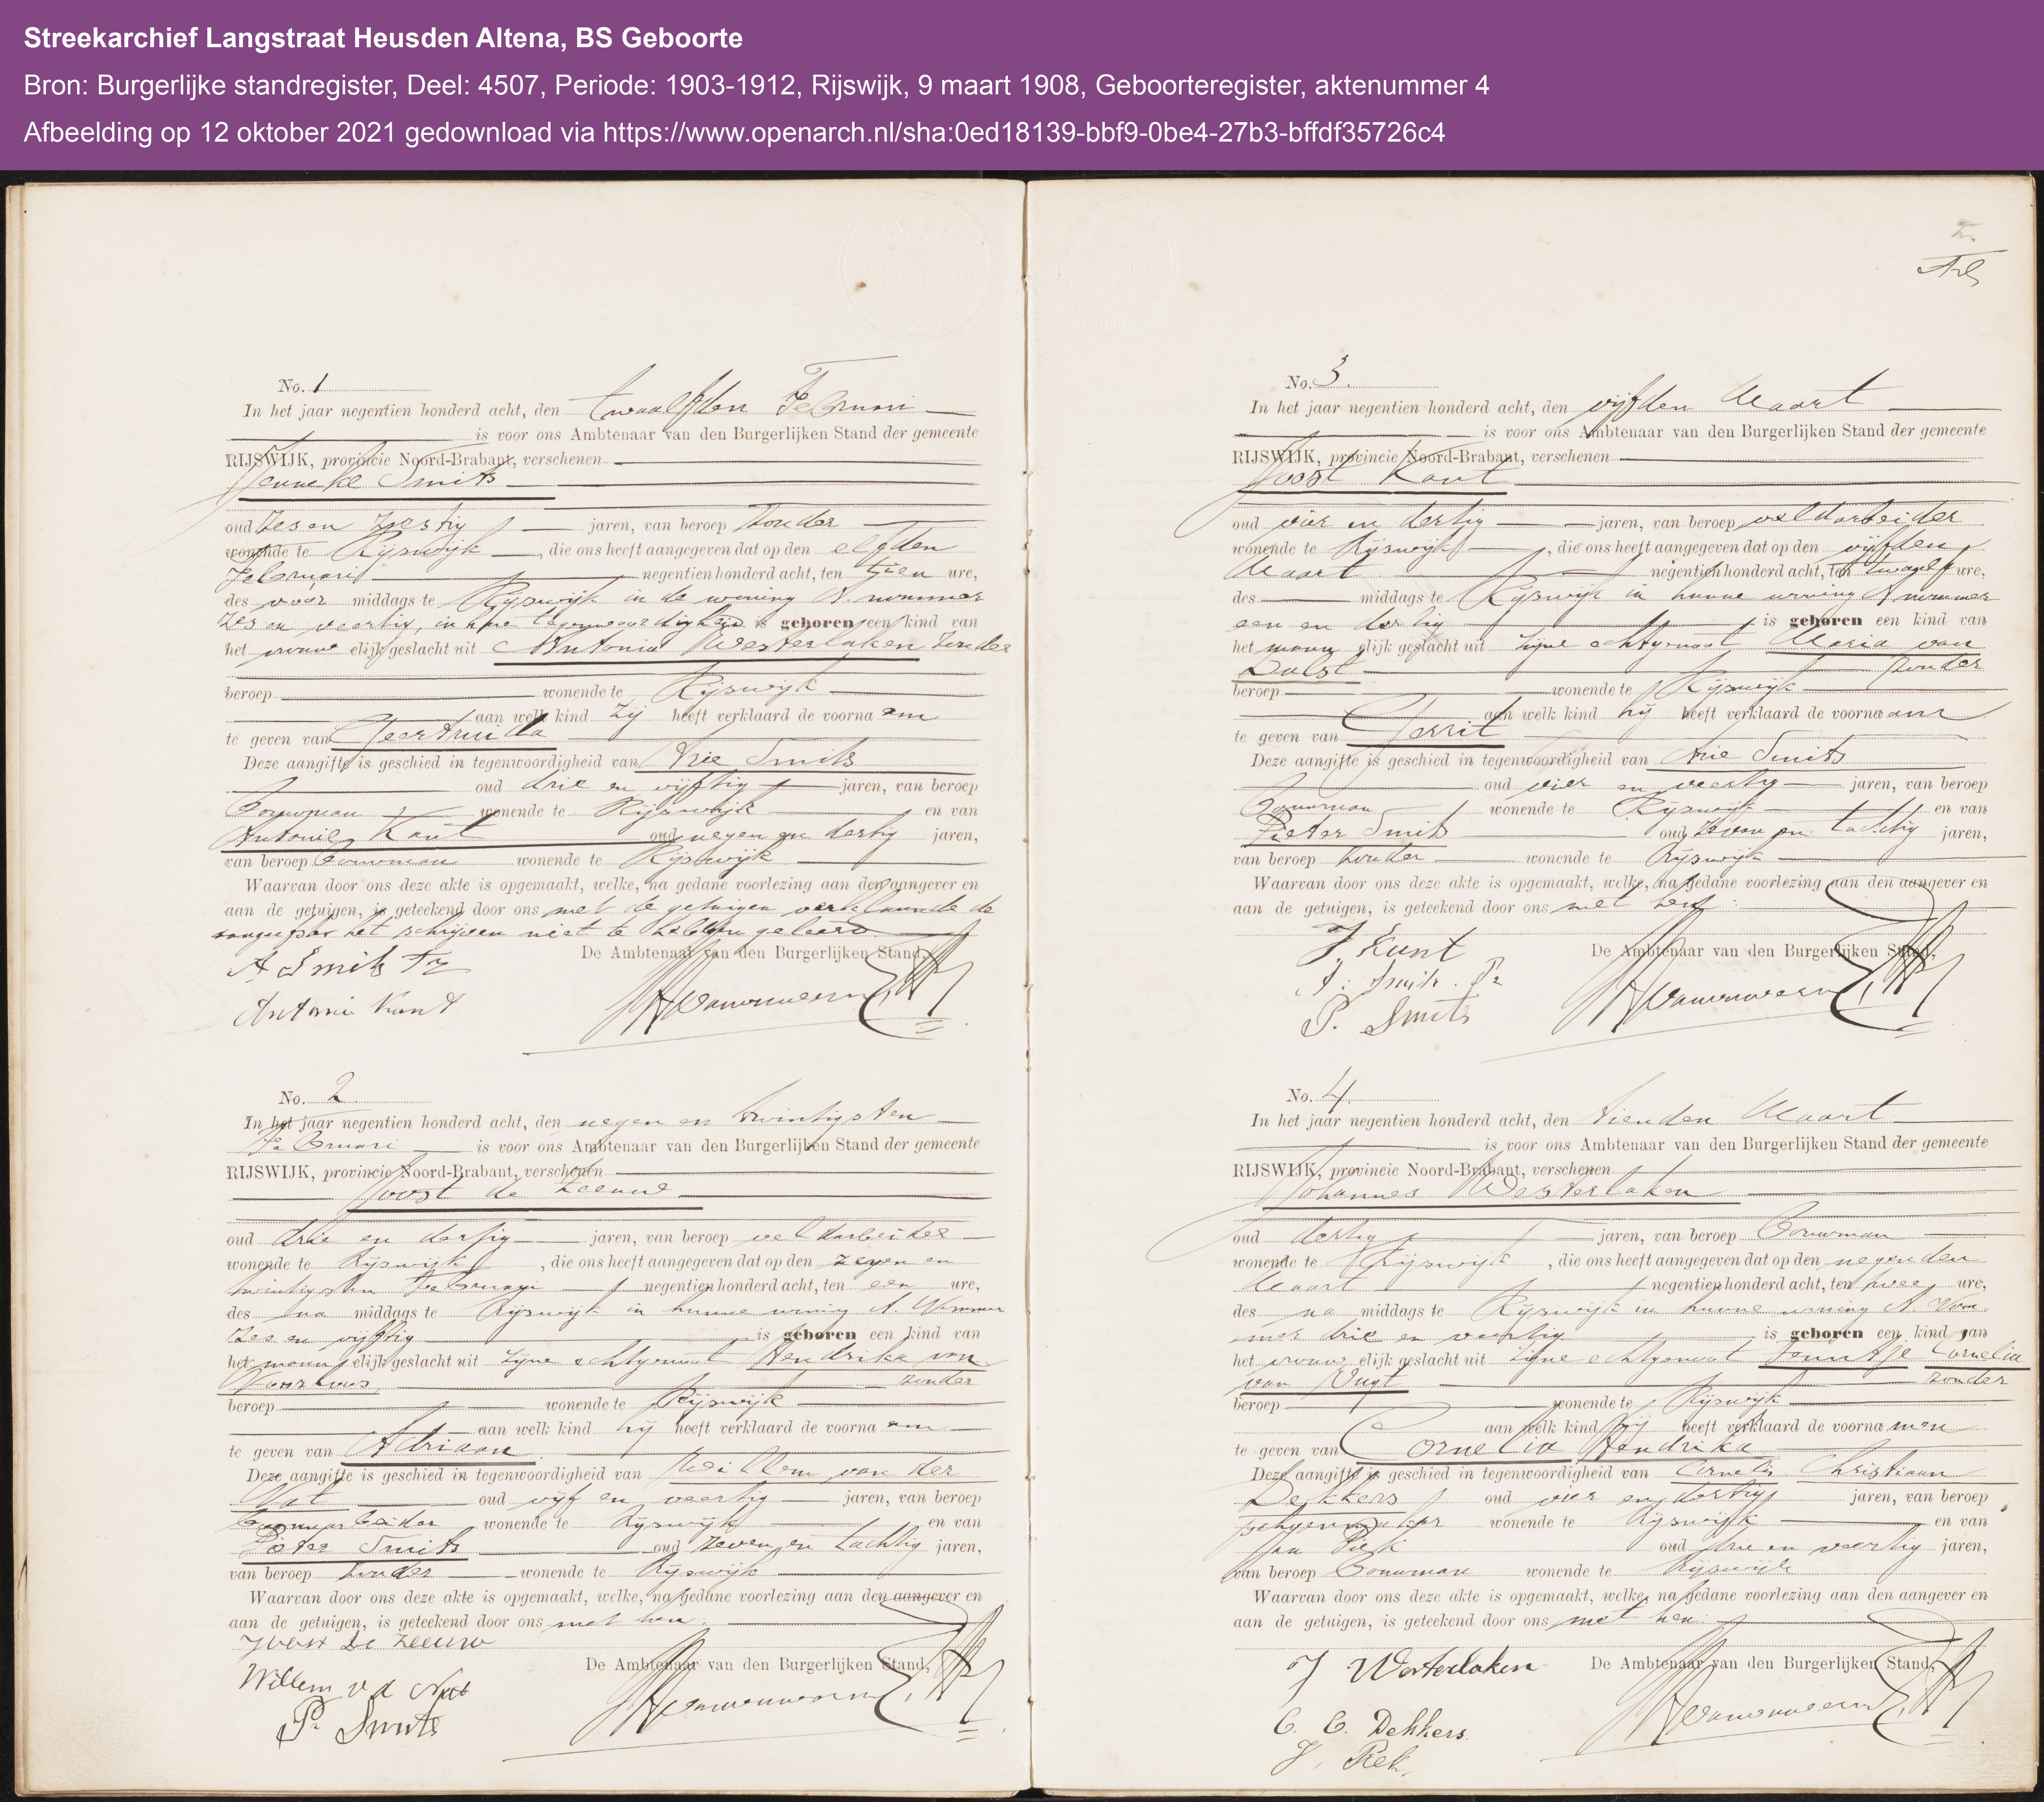 Streekarchief Langstraat Heusden Altena, BS Geboorte
Bron: Burgerlijke standregister, Deel: 4507, Periode: 1903-1912, Rijswijk, 9 maart 1908, Geboorteregister, aktenummer 4
Afbeelding op 12 oktober 2021 gedownload via https://www.openarch.nl/sha:0ed18139-bbf9-0be4-27b3-bffdf35726c4
No. 1
In het jaar negentien honderd acht, den twaalfden Februari
is voor ons Ambtenaar van den Burgerlijken Stand der gemeente
RIJSWIJK, provincie Noord-Brabant, verschenen
Smits
oud zes en zestig jaren, van beroep zonder
wonende te Rijswijk, die ons heeft aangegeven dat op den elfden
Februari negentien honderd acht, ten tien ure,
des voor middags te Rijswijk in de woning A nummer
zes en veertig, in hare tegenwoordigheid is geboren een kind van
het vrouwelijk geslacht uit Antonia Westerlaken zonder
beroep wonende te Rijswijk
aan welk kind zij heeft verklaard de voornaam
te geven van Geertruida
Deze aangifte is geschied in tegenwoordigheid van Arie Smits
oud drie en vijftig jaren, van beroep
bouwman wonende te Rijswijk en van
Antonie Kant oud negen en dertig jaren,
van beroep bouwman wonende te Rijswijk
Waarvan door ons deze akte is opgemaakt, welke, na gedane voorlezing aan den aangever en
aan de getuigen, is geteekend door ons met de getuigen verklarende de
het schrijven niet te hebben geleerd
De Ambtenaar van den Burgerlijken Stand,
A Smits Tz
Antonie Kant
No. 2
In het jaar negentien honderd acht, den negen en twintigsten
Februari is voor ons Ambtenaar van den Burgerlijken Stand der gemeente
RIJSWIJK, provincie Noord-Brabant, verschenen
Joost de Zeeuw
oud drie en dertig jaren, van beroep veldarbeider
wonende te Rijswijk, die ons heeft aangegeven dat op den zeven en
twintigsten Februari negentien honderd acht, ten een ure,
des na middags te Rijswijk in hunne woning A Nummer
zes en vijftig is geboren een kind van
het mannelijk geslacht uit zijne echtgenoot Hendrika van
zonder
beroep wonende te Rijswijk
aan welk kind hij heeft verklaard de voornaam
te geven van Adriaan
Deze aangifte is geschied in tegenwoordigheid van Willem van der
oud vijf en veertig jaren, van beroep
wonende te Rijswijk en van
Pieter Smits oud zeven en tachtig jaren,
van beroep zonder wonende te Rijswijk
Waarvan door ons deze akte is opgemaakt, welke, na gedane voorlezing aan den aangever en
aan de getuigen, is geteekend door ons met hen.
Joost de Zeeuw
De Ambtenaar van den Burgerlijken Stand,
Willem v d
P. Smits
No. 3.
In het jaar negentien honderd acht, den vijfden Maart
is voor ons Ambtenaar van den Burgerlijken Stand der gemeente
RIJSWIJK, provincie Noord-Brabant, verschenen
Joost Kant
oud vier en dertig jaren, van beroep veldarbeider
wonende te Rijswijk, die ons heeft aangegeven dat op den vijfden
Maart negentien honderd acht, ten twaalf ure,
des middags te Rijswijk in hunne woning A nummer
een en dertig is geboren een kind van
het mannelijk geslacht uit zijne echtgenoot Maria van
Dalst zonder
beroep wonende te Rijswijk
aan welk kind hij heeft verklaard de voornaam
te geven van Gerrit
Deze aangifte is geschied in tegenwoordigheid van Arie Smits
oud vier en veertig jaren, van beroep
bouwman wonende te Rijswijk en van
Pieter Smits oud zeven en tachtig jaren,
van beroep zonder wonende te Rijswijk
Waarvan door ons deze akte is opgemaakt, welke, na gedane voorlezing aan den aangever en
aan de getuigen, is geteekend door ons met hen.
J Kant
De Ambtenaar van den Burgerlijken Stand,
A. Smits Pz
P. Smits
No. 4.
In het jaar negentien honderd acht, den tienden Maart
is voor ons Ambtenaar van den Burgerlijken Stand der gemeente
RIJSWIJK, provincie Noord-Brabant, verschenen
Johannes Westerlaken
oud dertig jaren, van beroep bouwman
wonende te Rijswijk, die ons heeft aangegeven dat op den negenden
Maart negentien honderd acht, ten twee ure,
des na middags te Rijswijk in hunne woning A Num-
mer drie en veertig is geboren een kind van
het vrouwelijk geslacht uit zijne echtgenoot Jantje Cornelia
van Vugt zonder
beroep wonende te Rijswijk
aan welk kind hij heeft verklaard de voornamen
te geven van Cornelia Hendrika
Deze aangifte is geschied in tegenwoordigheid van Cornelis Christiaan
Dekkers oud vier en dertig jaren, van beroep
wonende te Rijswijk en van
Jan oud drie en veertig jaren,
van beroep bouwman wonende te Rijswijk
Waarvan door ons deze akte is opgemaakt, welke, na gedane voorlezing aan den aangever en
aan de getuigen, is geteekend door ons met hen.
J Westerlaken
De Ambtenaar van den Burgerlijken Stand,
C. C. Dekkers